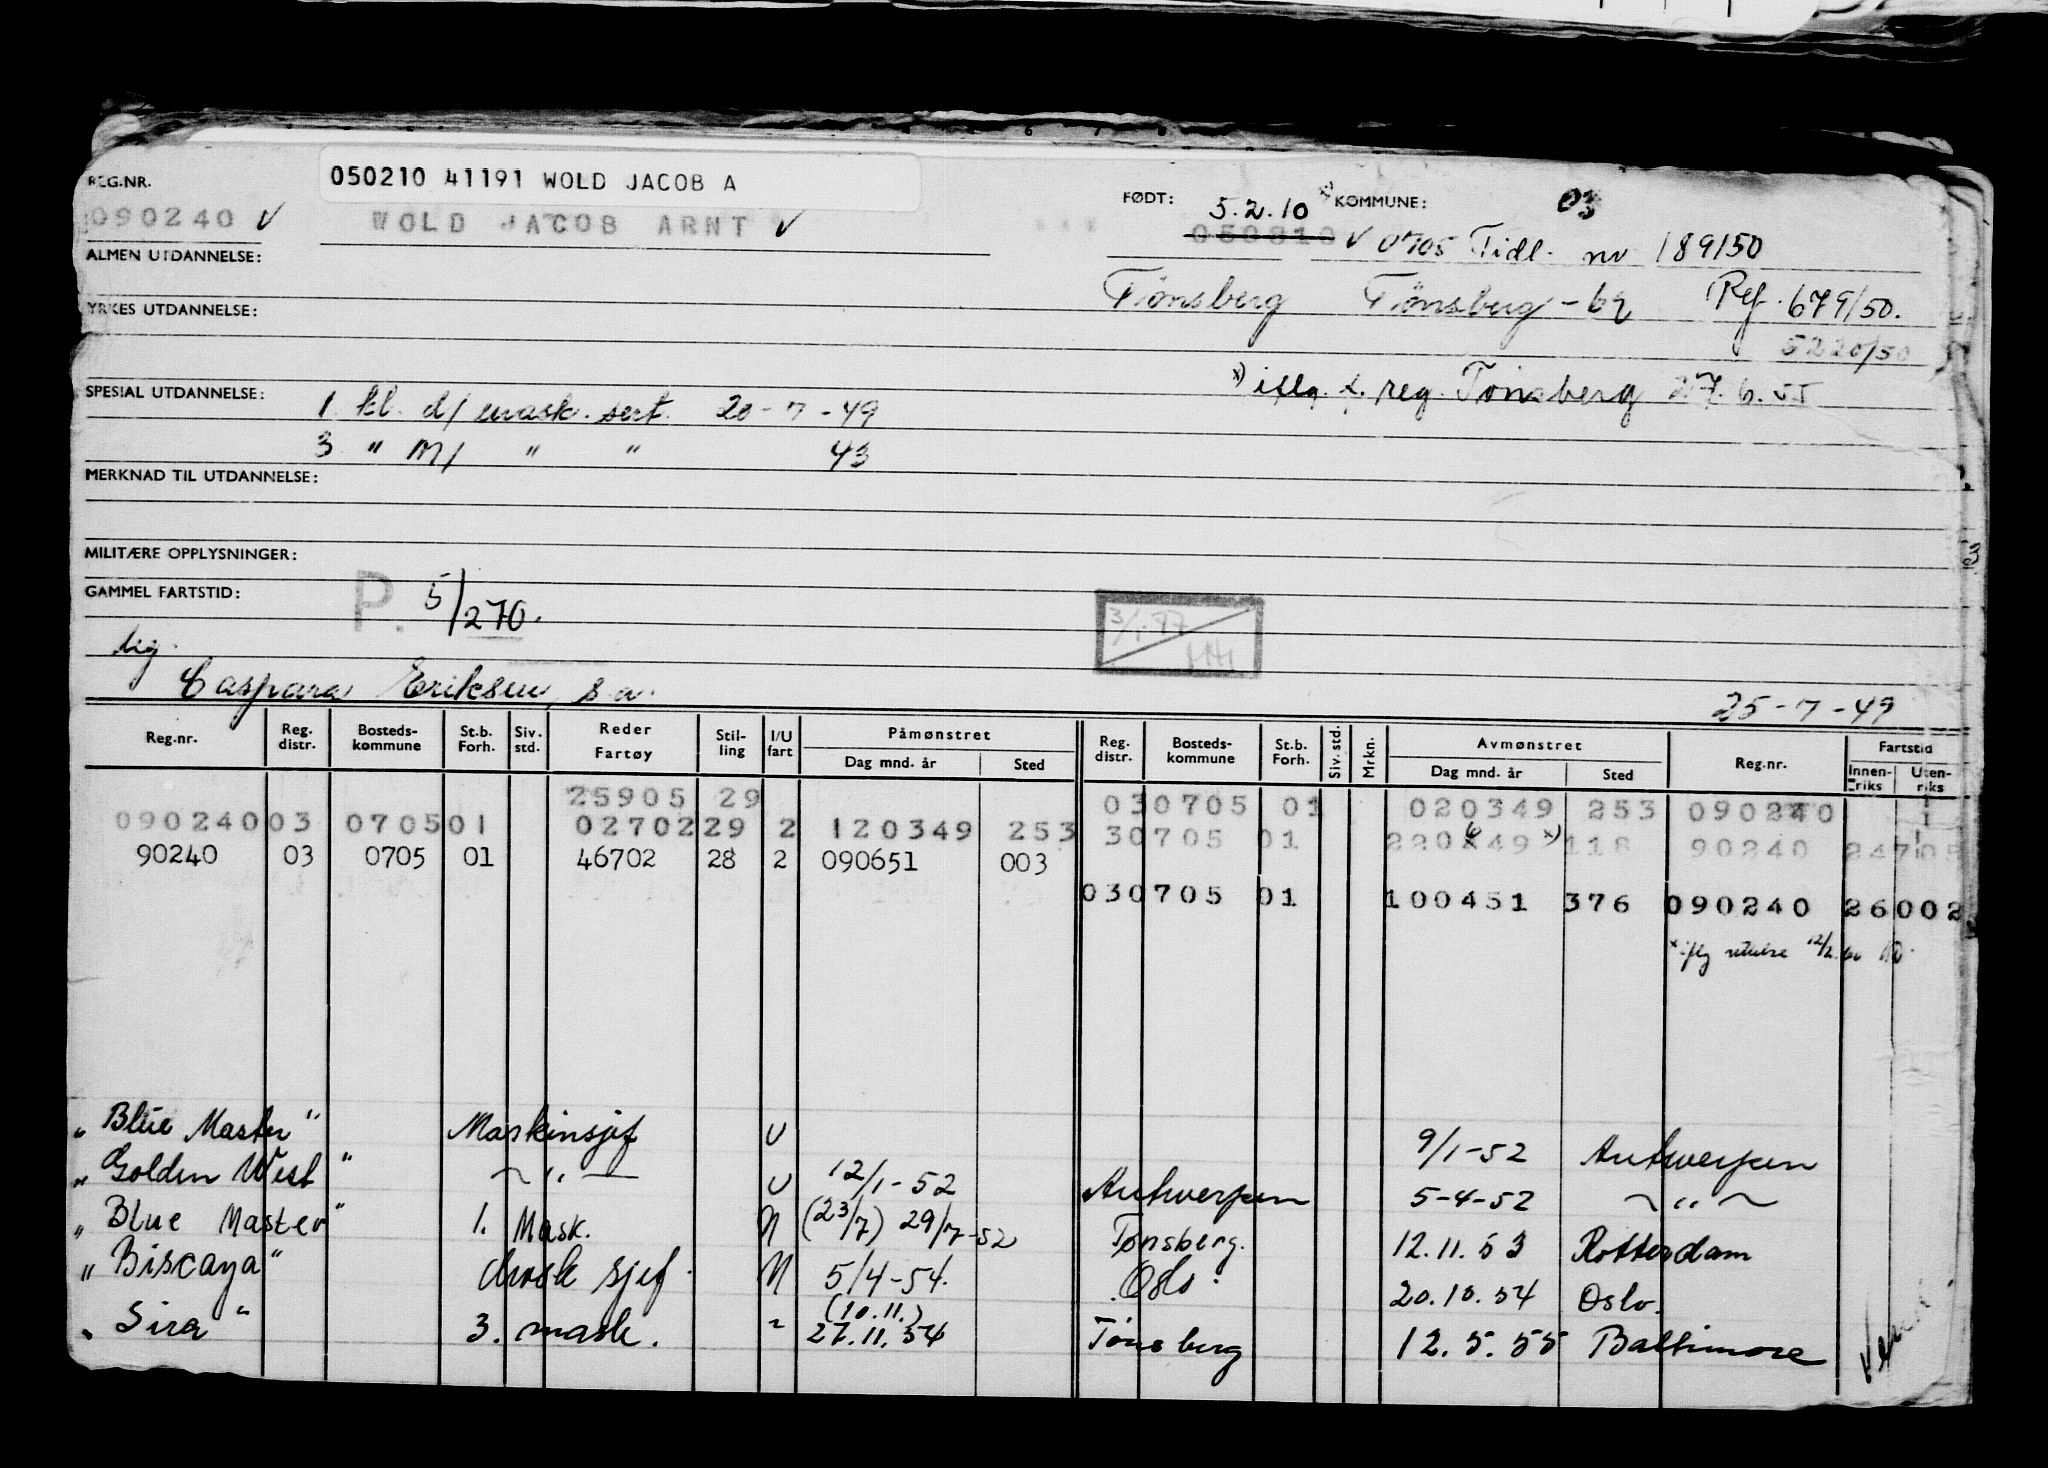 REG.NR.
050210 41191 WOLD JACOB A
FØDT: 5.2.10 KOMMUNE: 03
090240 V WOLD JACOB ARNT V
V 0705 Tidl. nr 189/50
ALMEN UTDANNELSE:
Tønsberg Tønsberg - by Ref. 679/50.
YRKES UTDANNELSE:
5220/50
x) iflg. s. reg. Tønsberg 27.6.55
SPESIAL UTDANNELSE: 1 kl. d/ mask. sert. 20-7-49
3 " M/ " " 43
MERKNAD TIL UTDANNELSE:
MILITÆRE OPPLYSNINGER:
GAMMEL FARTSTID: P. 5/270.
3/1.77
Caspara Eriksen, s.a.
25-7-49
Reg.nr. Reg. distr. Bosteds-kommune St.b. Forh. Siv. std. Reder Fartøy Stil-ling I/U fart Påmønstret Dag mnd. år Sted Reg. distr. Bosteds-kommune St.b. Forh. Siv. std. Mrkn. Avmønstret Dag mnd. år Sted Reg.nr. Fartstid Innen-riks Uten-riks
25905 29 03 0705 01 020349 253 090240
090240 03 0705 01 02702 29 2 120349 253 30705 01 220649 x) 118 90240 24705
90240 03 0705 01 46702 28 2 090651 003
03 0705 01 100451 376 090240 26002
x iflg 12/2
"Blue Master" Maskinsjef U 9/1-52 Antwerpen
"Golden West" — " — U 12/1-52 Antwerpen 5-4-52 — " —
"Blue Master" 1. Mask. N (23/7) 29/7-52 Tønsberg. 12.11.53 Rotterdam
"Biscaya" Mask sjef. N 5/4-54. Oslo. 20.10.54 Oslo.
(10.11.)
"Sira" 3. mask. " 27.11.54 Tønsberg 12.5.55 Baltimore